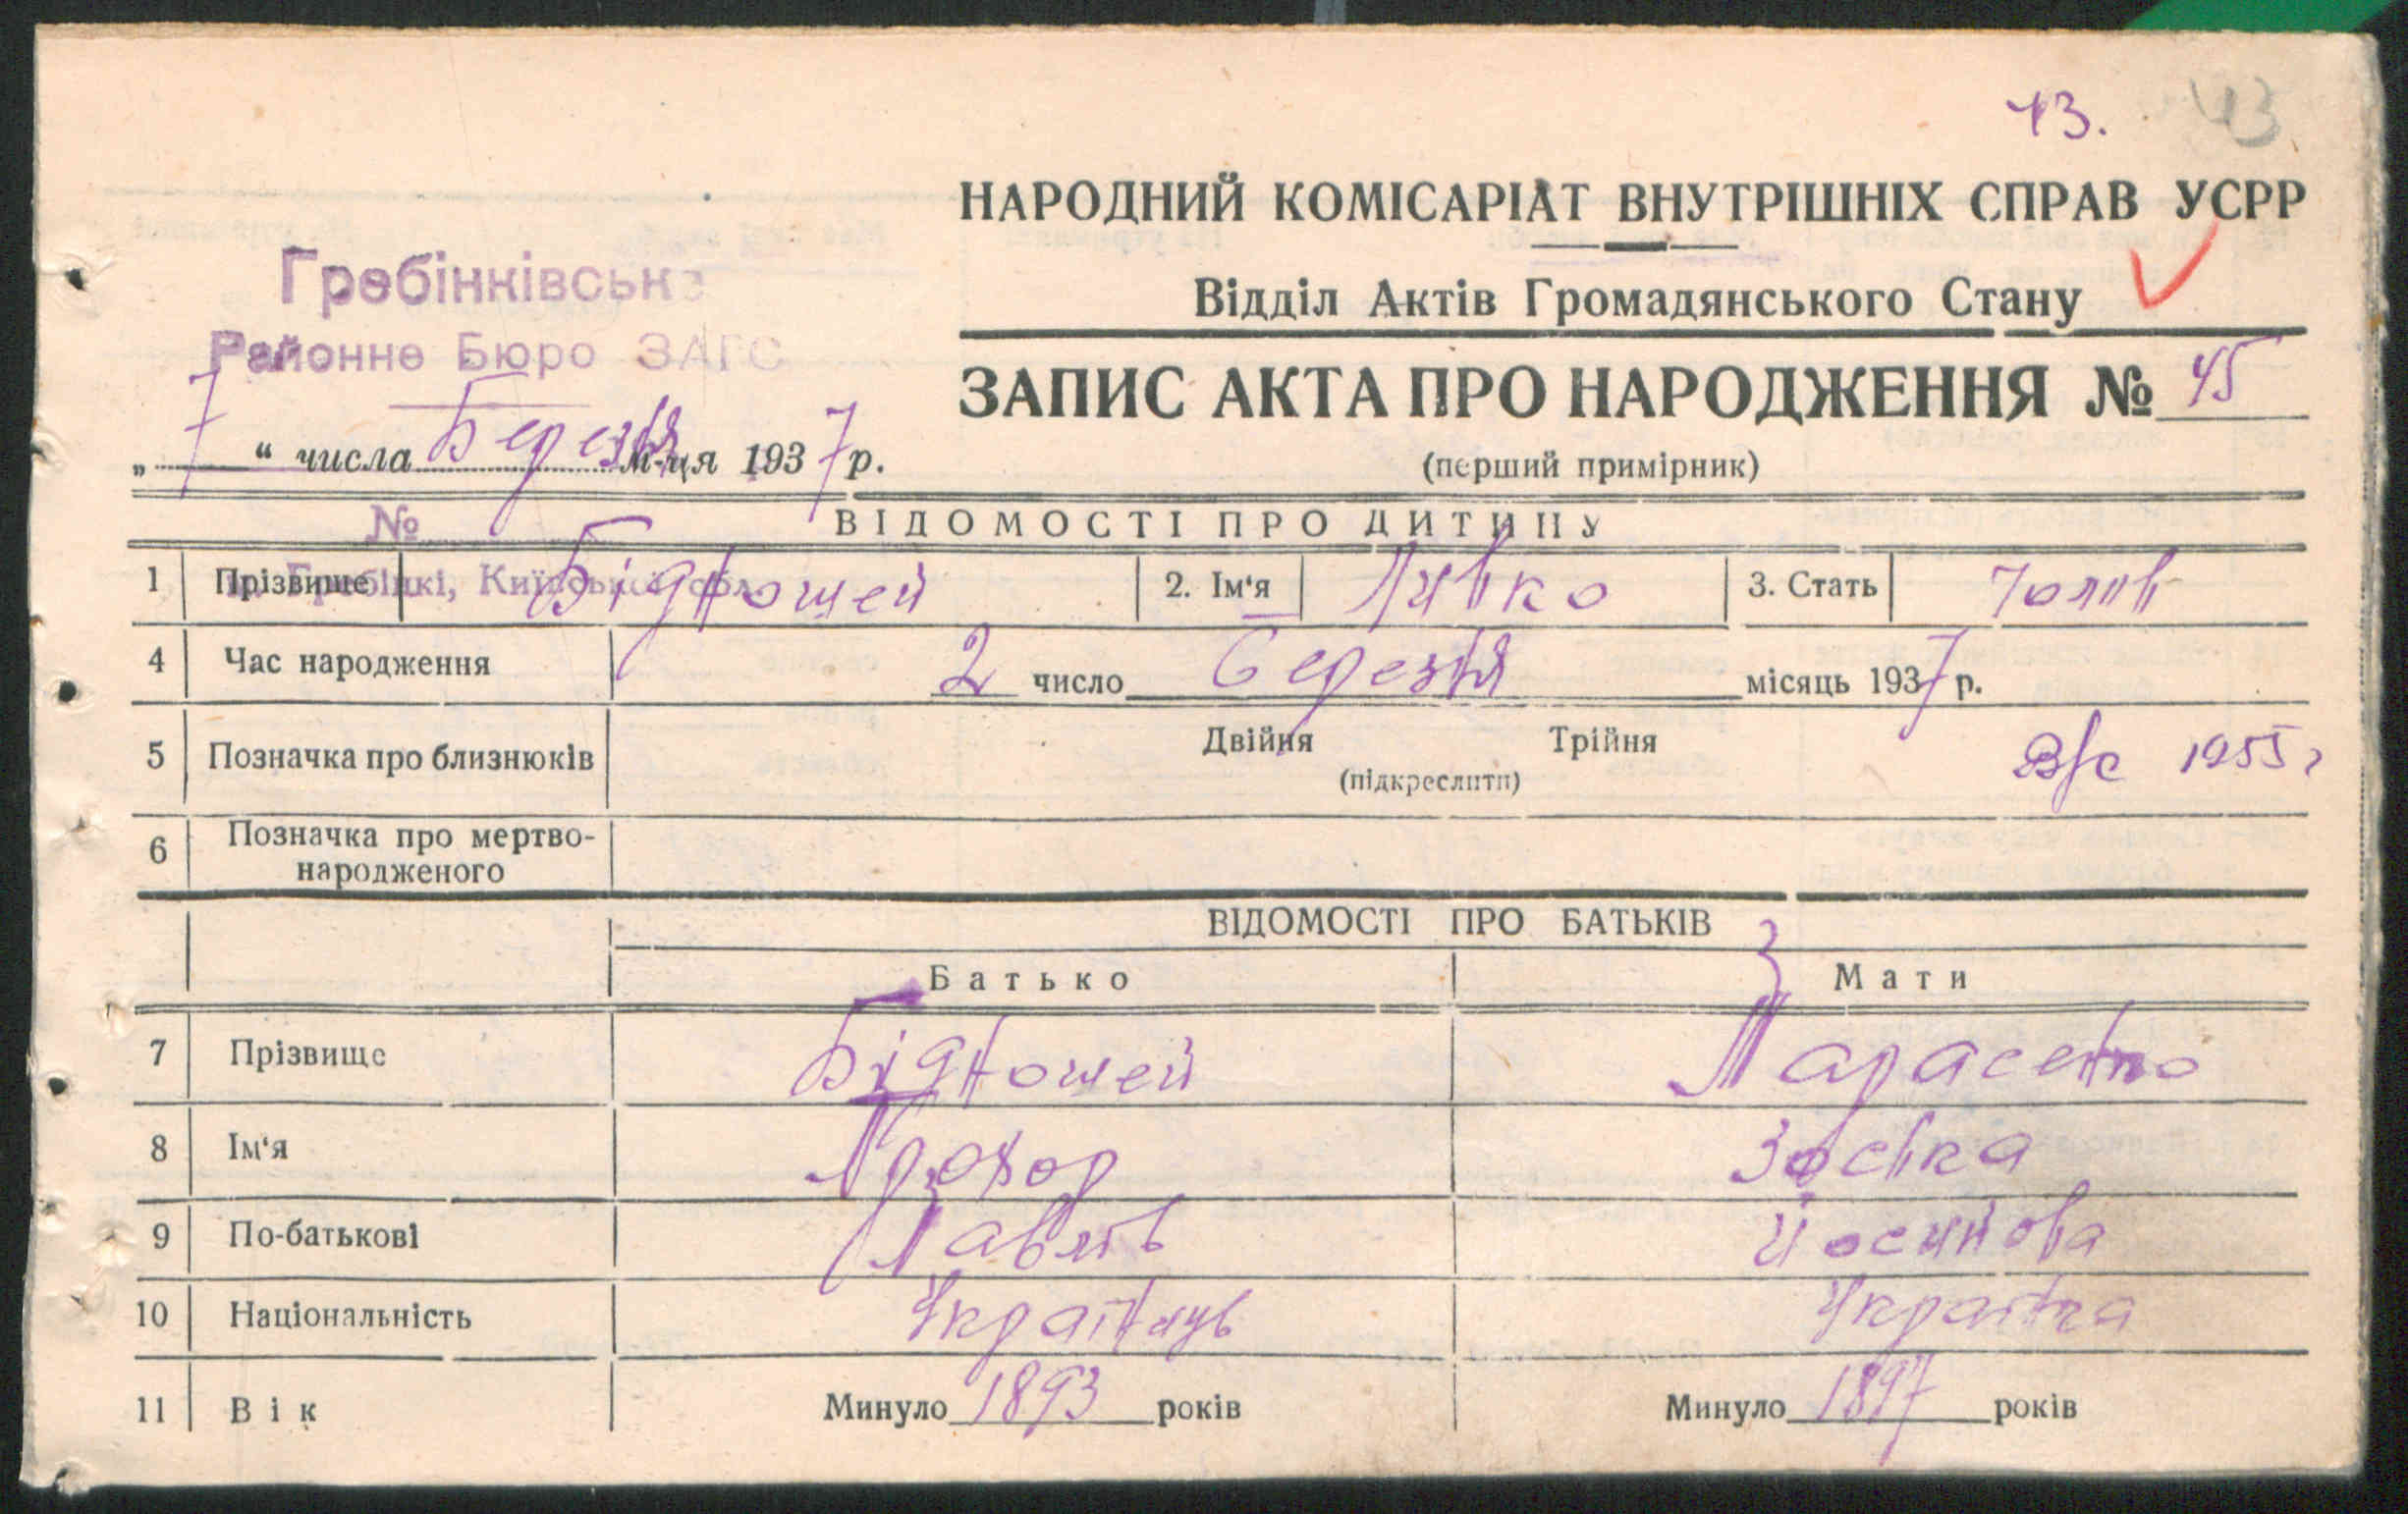 43. 43
НАРОДНИЙ КОМІСАРІАТ ВНУТРІШНІХ СПРАВ УСРР
Відділ Актів Громадянського Стану
Гребінківське
Районне Бюро ЗАГС
ЗАПИС АКТА ПРО НАРОДЖЕННЯ № 45
(перший примірник)
„ 7 “ числа Березня м-ця 1937 р.
№
ВІДОМОСТІ ПРО ДИТИНУ
м. Гребінкі, Київської обл.
1 Прізвище Бідношей 2. Ім‘я Левко 3. Стать Чолов
4 Час народження 2 число березня місяць 1937 р.
5 Позначка про близнюків Двійня Трійня
(підкреслити)
В/с 1955 г
6 Позначка про мертво-
народженого
ВІДОМОСТІ ПРО БАТЬКІВ
Батько Мати
7 Прізвище Бідношей Тарасенко
8 Ім‘я Прохор Зоська
9 По-батькові Павлів Йосипова
10 Національність Українць Украінка
11 Вік Минуло 1893 років Минуло 1897 років